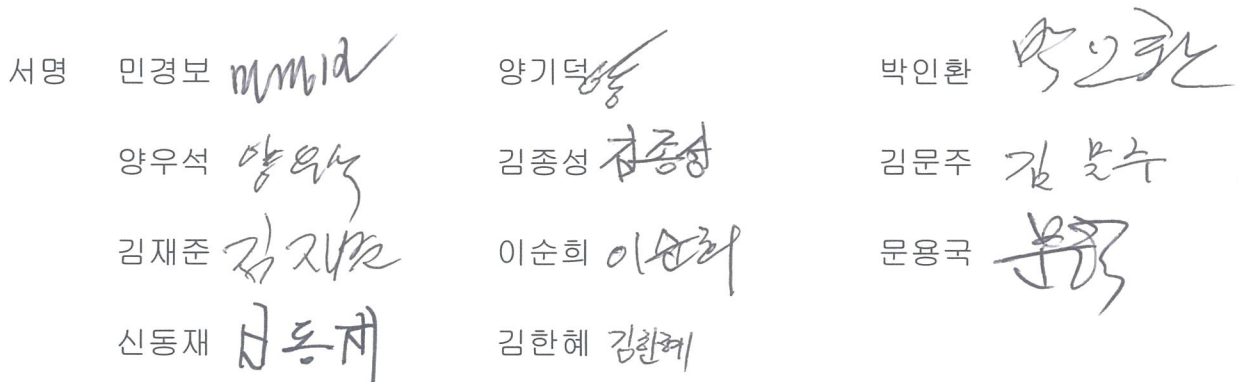 서명 민경보 양기덕 박인환 박인환
양우석 양우석 김종성 김종성 김문주 김문주
김재준 김재준 이순희 이순희 문용국
신동재 신동재 김한혜 김한혜